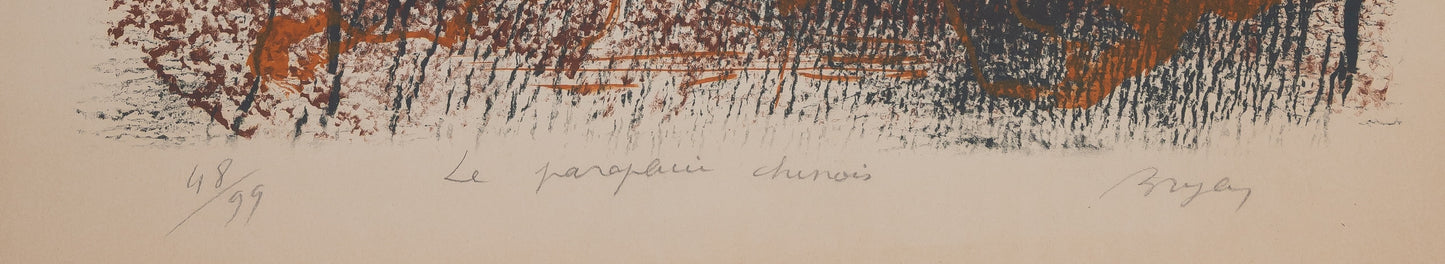 48/99 Le parapluie chinois